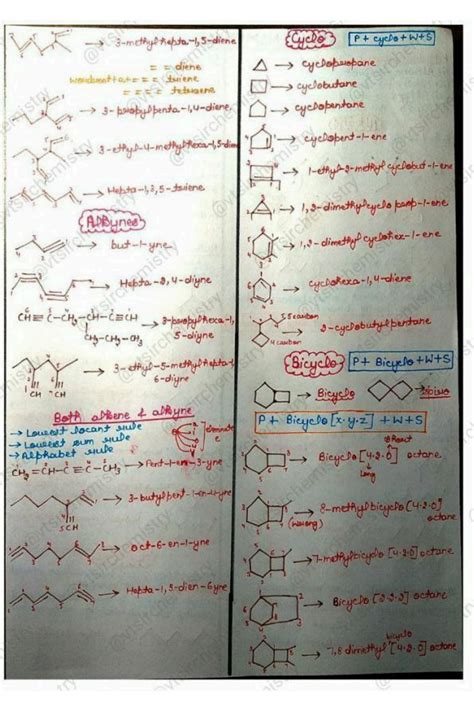 → 3-methylhepta-1,5-diene
= = = diene
= = = triene
= = = tetraene
→ 3-propylpenta-1,4-diene
→ 3-ethyl-4-methylhexa-1,5-diene
→ Hepta-1,3,5-triene
Alkynes
→ but-1-yne
→ Hepta-2,4-diyne
→ 3-propylhexa-1,
5-diyne
CH₂-CH₂-CH₃
→ 3-ethyl-5-methylhepta-1,
6-diyne
CH CH
Both alkene & alkyne
→ Lowest locant rule
→ Lowest sum rule
→ Alphabet rule
→ Pent-1-en-3-yne
→ 3-butylpent-1-en-4-yne
CH
→ oct-6-en-1-yne
→ Hepta-1,3-dien-6-yne
Cyclo
P + cyclo + W + S
→ cyclopropane
→ cyclobutane
→ cyclopentane
→ cyclopent-1-ene
→ 1-ethyl-2-methyl cyclobut-1-ene
→ 1,2-dimethylcyclo prop-1-ene
→ 1,2-dimethyl cyclohex-1-ene
→ cyclohexa-1,4-diene
5 carbon
→ 2-cyclobutylpentane
4 carbon
Bicyclo
P + Bicyclo + W + S
→ Bicyclo
P + Bicyclo [x.y.z] + W + S
→ Bicyclo [4.2.0] octane
Long
→ 8-methylbicyclo [4.2.0]
(Wrong) octane
→ 7-methylbicyclo [4.2.0] octane
→ Bicyclo [2.2.2] octane
bicyclo
→ 7,8 dimethyl [4.2.0] octane
@vtsirchemistry